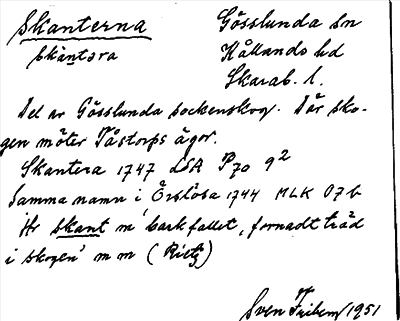 Skanterna Gösslunda sn
skantəra Kållands hd
Skarab. l.
Del av Gösslunda sockenskog. Där sko-
gen möter Tåstorps ägor.
Skantera 1747 LSA P70 9²
Samma namn i Örslösa 1744 MLK 07b
Hr skant m 'barkfallet, fornadt träd
i skogen' m m (Rietz)
Sven Friberg 1951